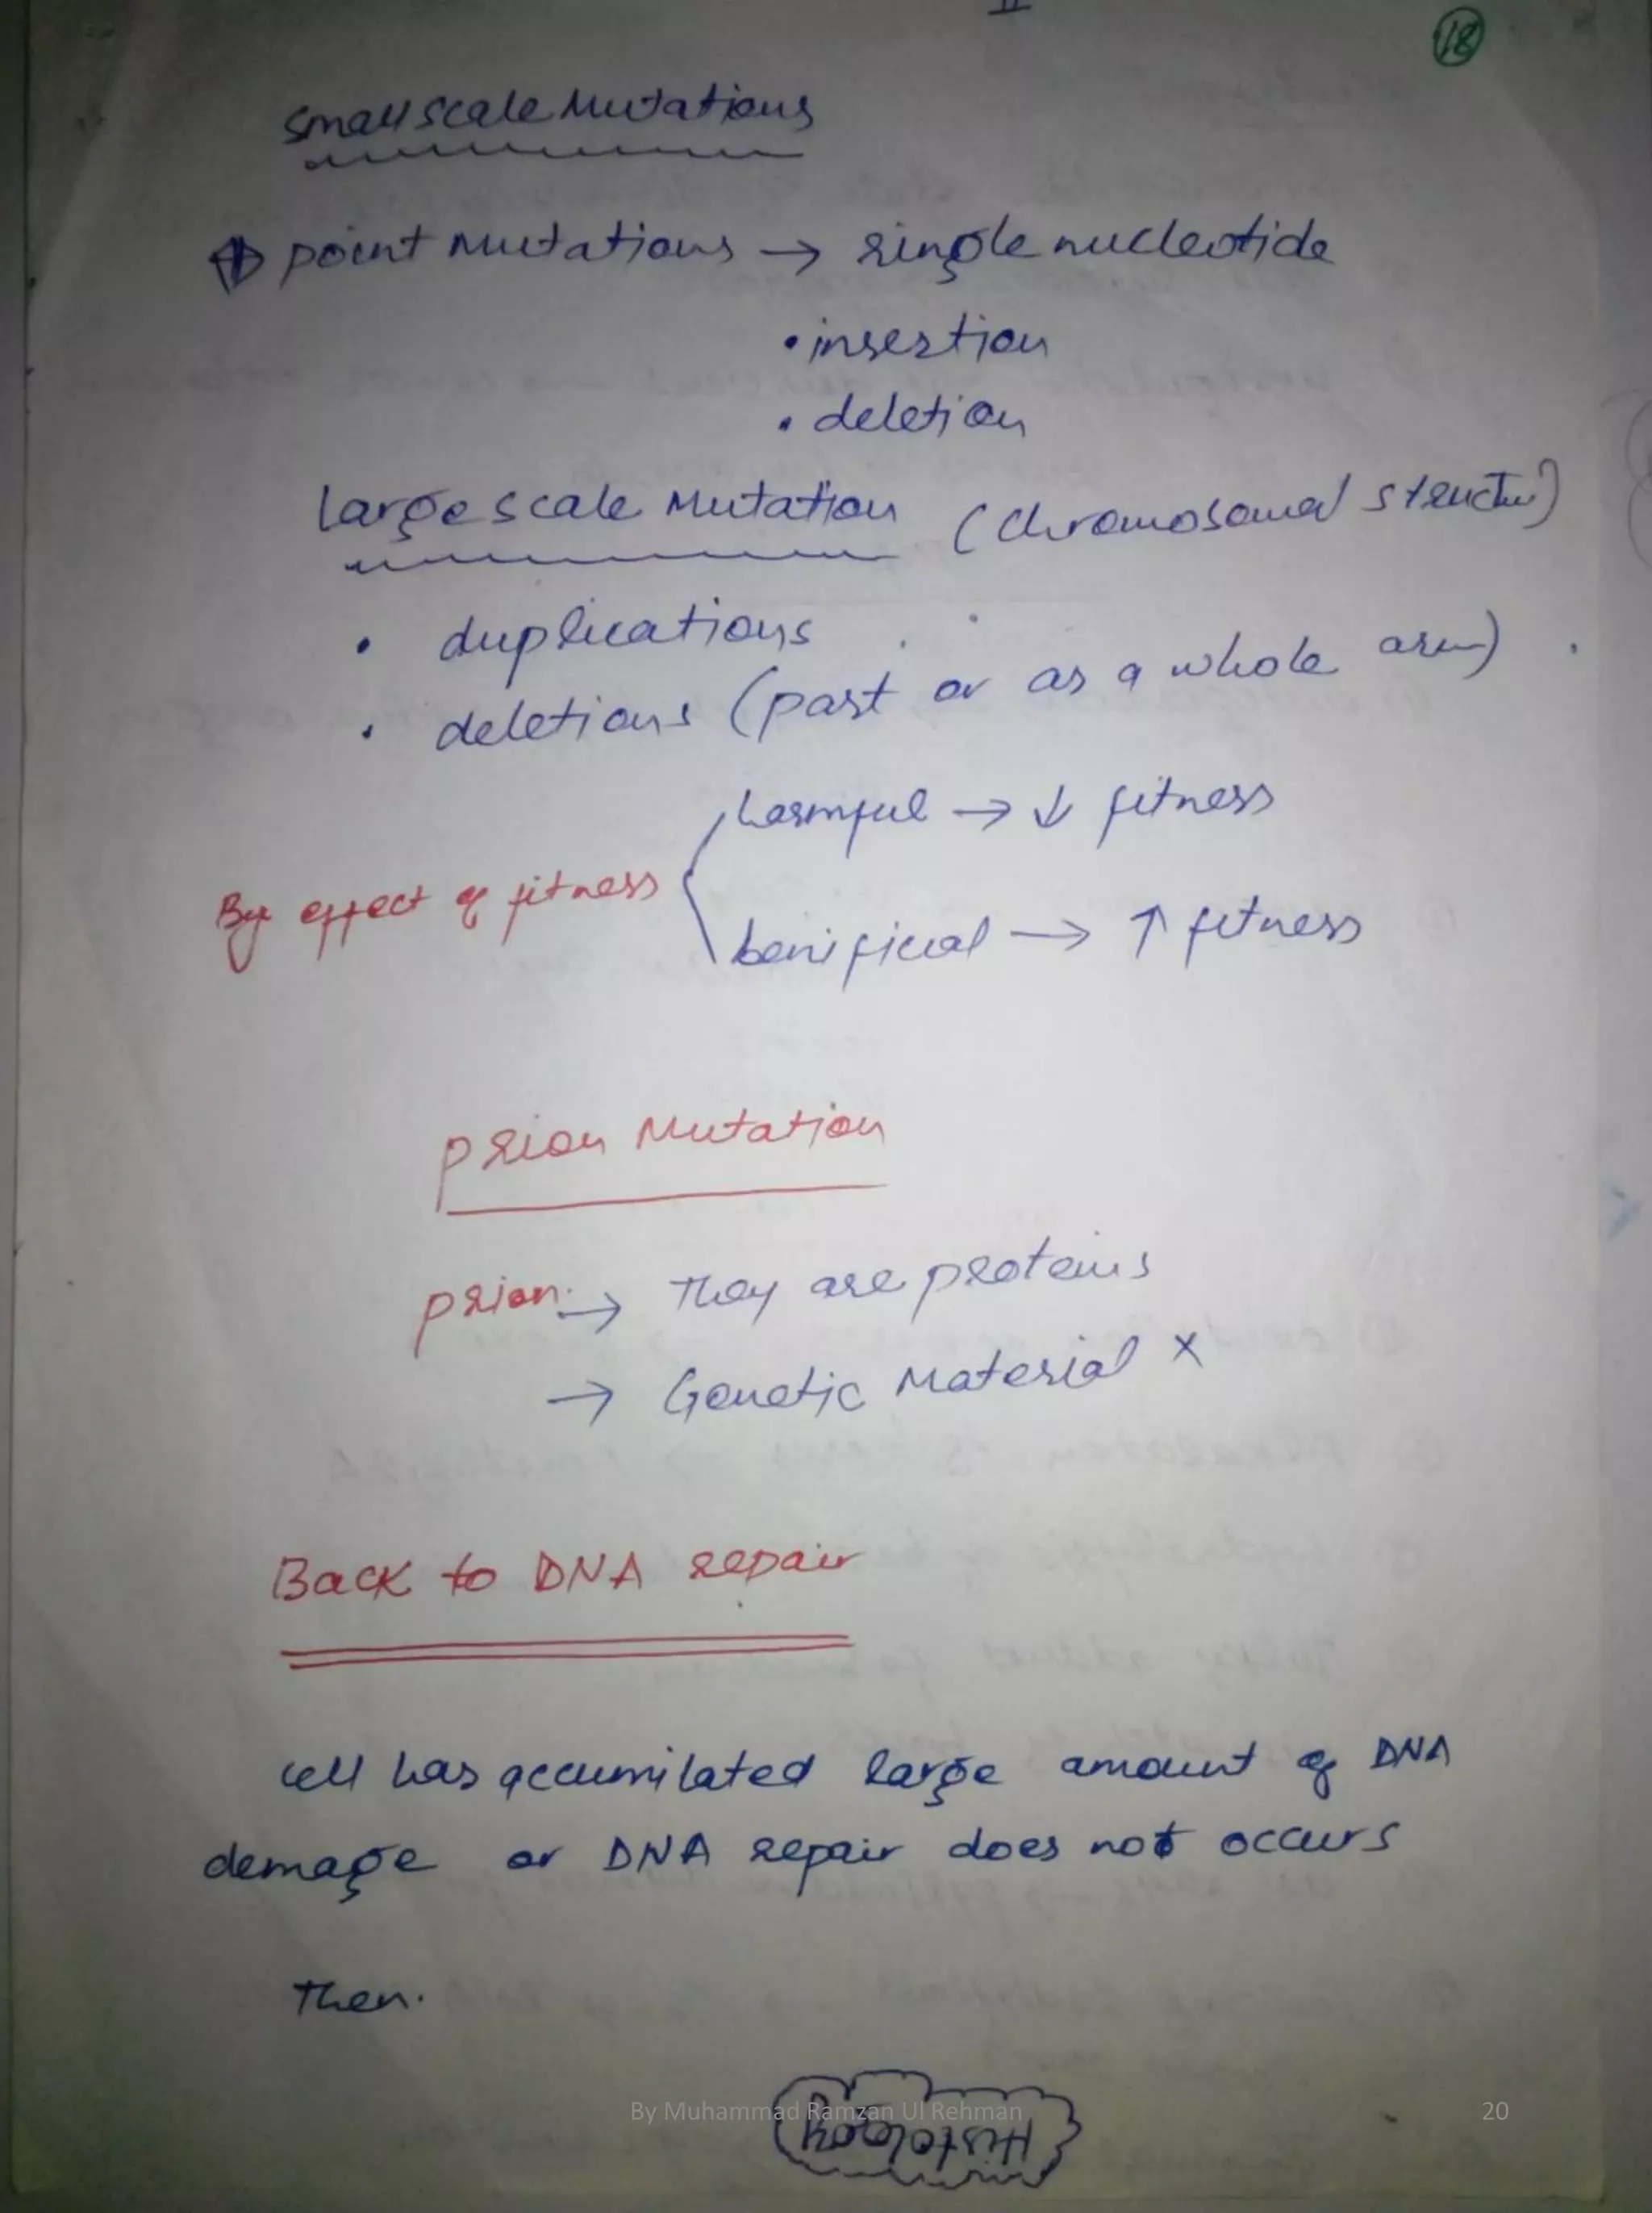 18
Small scale Mutations
point Mutations → single nucleotide
• insertion
• deletion
large scale Mutation (chromosomal structur)
• duplications
• deletions (part or as a whole arm)
harmful → ↓ fitness
By effect of fitness
benificial → ↑ fitness
prion Mutation
prion. → They are proteins
→ Genetic Material x
Back to DNA repair
cell has accumilated large amount of DNA
demage or DNA repair does not occurs
Then.
By Muhammad Ramzan Ul Rehman
20
Histology